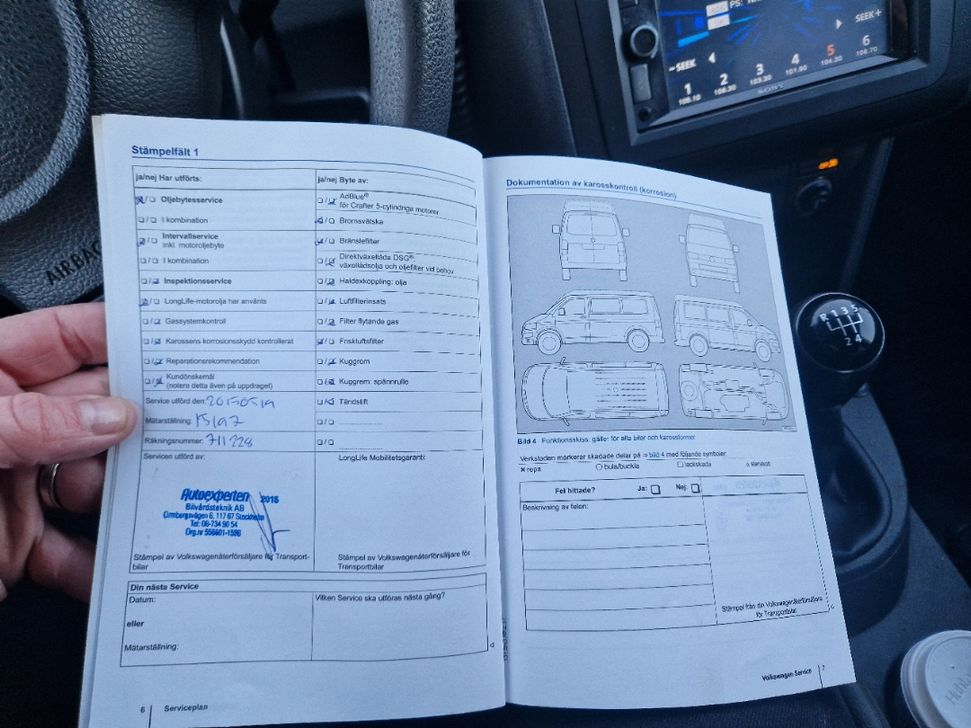 Stämpelfält 1
ja/nej Har utförts:
Oljebytesservice
I kombination
Intervallservice
inkl. motoroljebyte
I kombination
Inspektionsservice
LongLife-motorolja har använts
Gassystemkontroll
Karossens korrosionsskydd kontrollerat
Reparationsrekommendation
Kundönskemål
(notera detta även på uppdraget)
Service utförd den:
Mätarställning:
Räkningsnummer: 711228
ja/nej Byte av:
AdBlue®
för Crafter 5-cylindriga motorer
Bromsvätska
Bränslefilter
Direktväxellåda DSG®:
växellådsolja och oljefilter vid behov
Haldexkoppling: olja
Luftfilterinsats
Filter flytande gas
Friskluftsfilter
Kuggrem
Kuggrem: spännrulle
Tändstift
Servicen utförd av:
Autoexperten 2015
Bilvårdsteknik AB
6, 117 67 Stockholm
Tel: 08-734 90 54
Org.nr 556601-1598
Stämpel av Volkswagenåterförsäljare för Transport-
bilar
LongLife Mobilitetsgaranti:
Stämpel av Volkswagenåterförsäljare för
Transportbilar
Din nästa Service
Datum:
eller
Mätarställning:
Vilken Service ska utföras nästa gång?
6 Serviceplan
Dokumentation av karosskontroll (korrosion)
Bild 4 Funktionsskiss: gäller för alla bilar och karossformer
Verkstaden markerar skadade delar på ⇒ bild 4 med följande symboler:
repa
bula/buckla
lackskada
stenskott
Fel hittade?
Ja:
Nej:
Beskrivning av felen:
Stämpel från din Volkswagenåterförsäljare
för Transportbilar
Volkswagen Service 7
AIRBAG
PS:
SEEK+
-SEEK
1 2 3 4 5 6
106.30
103.30
101.90
104.30
SONY
R 1 3 5
2 4